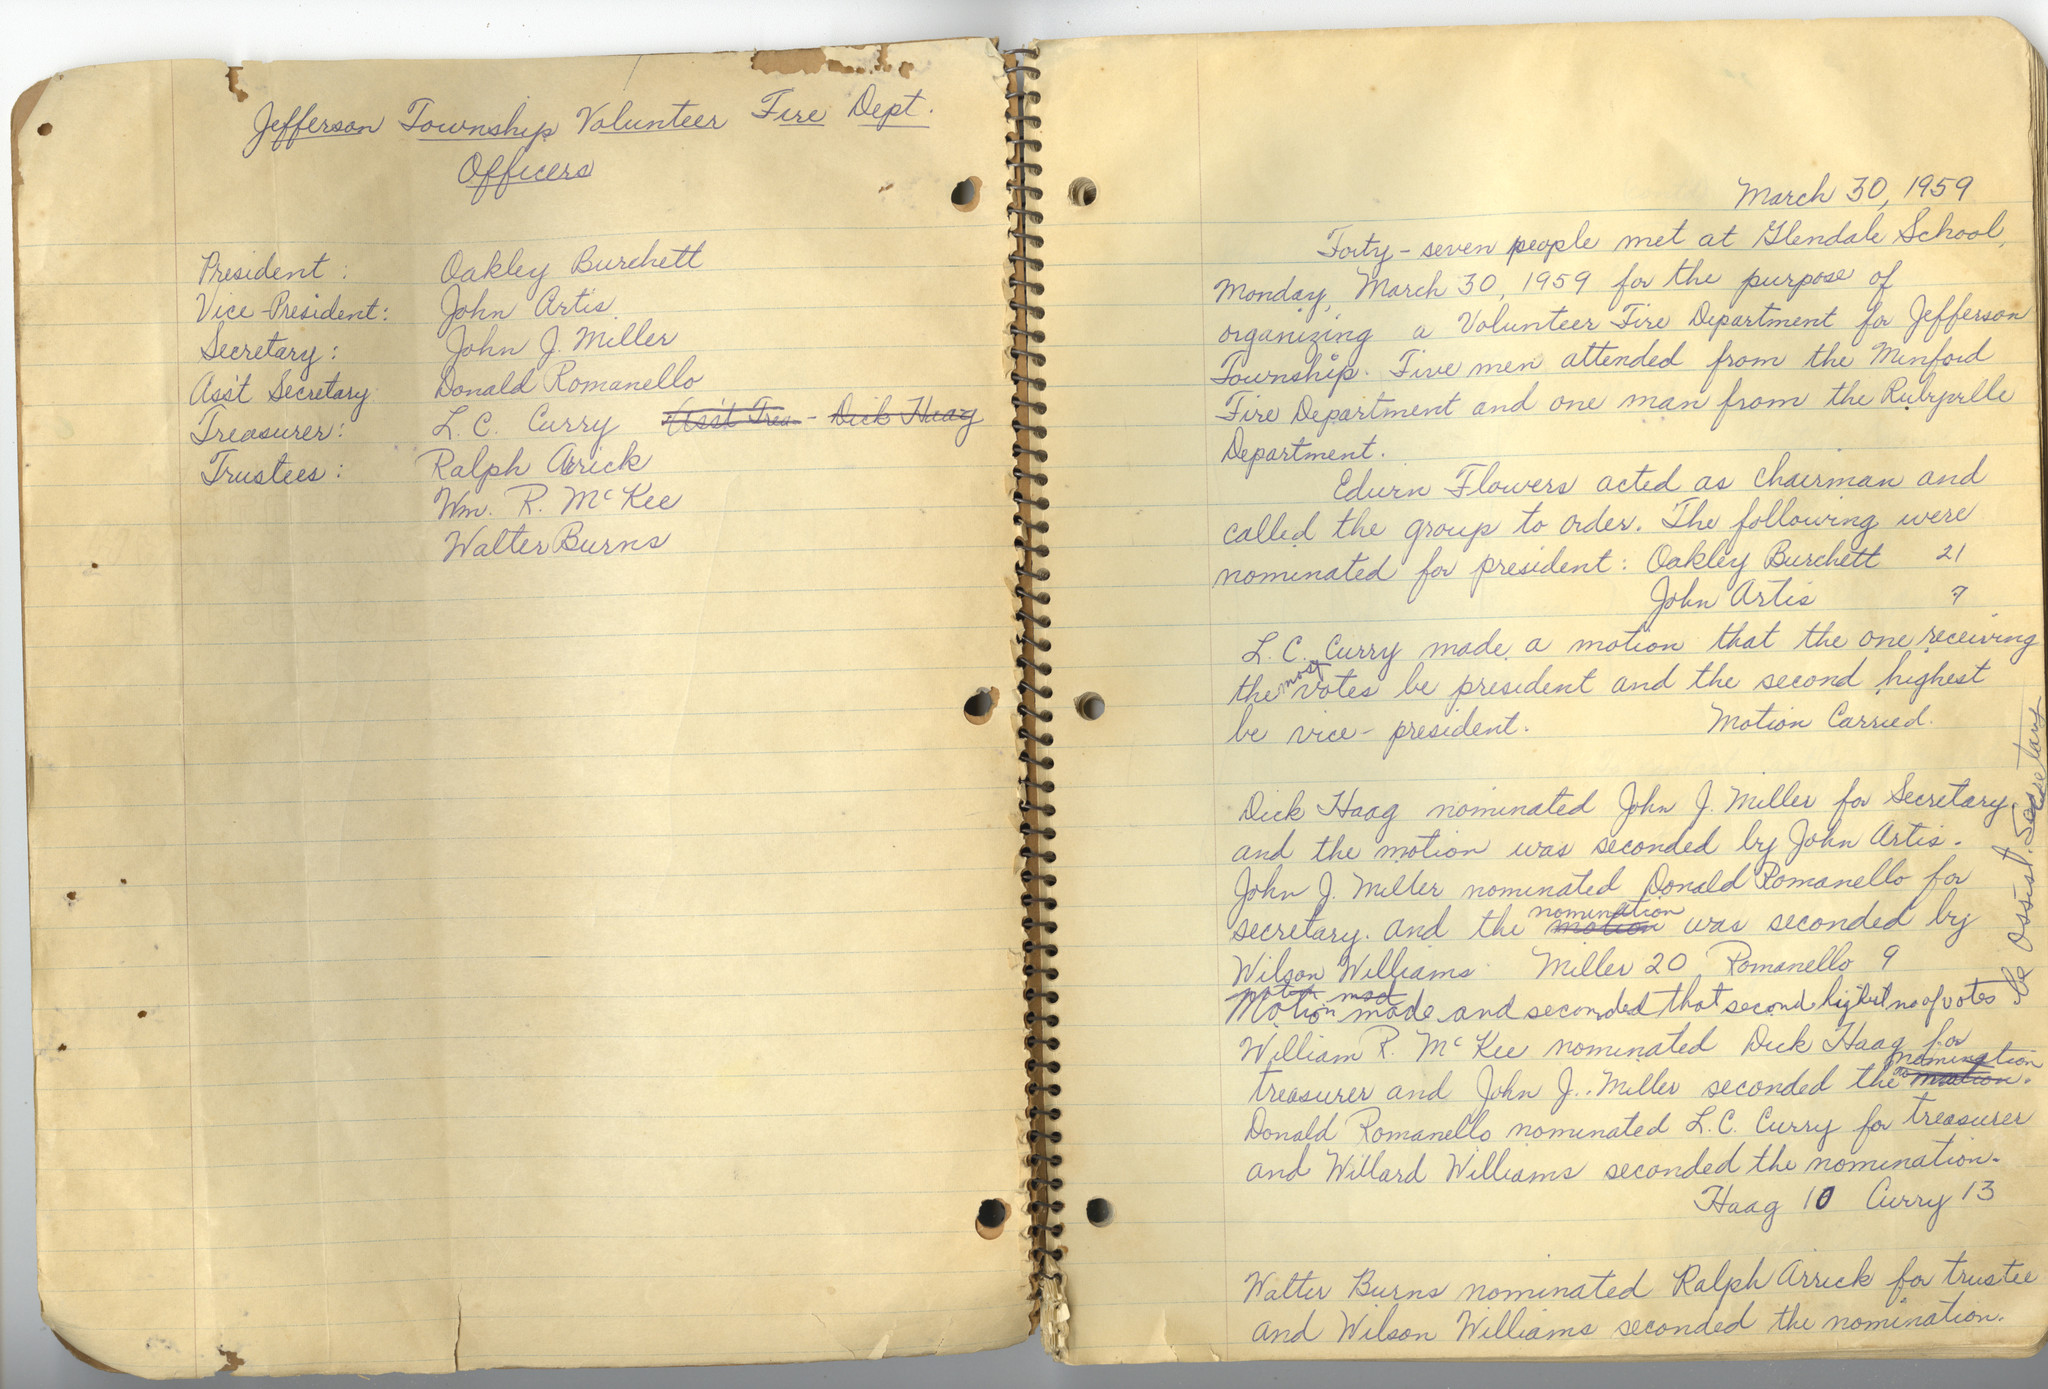 Jefferson Township Volunteer Fire Dept.
Officers
President: Oakley Burchett
Vice-President: John Artis
Secretary: John J. Miller
Ass't Secretary Donald Romanello
Treasurer: L. C. Curry Ass't Trea. - Dick Haag
Trustees: Ralph Arrick
Wm. R. McKee
Walter Burns
March 30, 1959
Forty-seven people met at Glendale School,
Monday, March 30, 1959 for the purpose of
organizing a Volunteer Fire Department for Jefferson
Township. Five men attended from the Minford
Fire Department and one man from the Rubyville
Department.
Edwin Flowers acted as chairman and
called the group to order. The following were
nominated for president: Oakley Burchett 21
John Artis 7
L. C. Curry made a motion that the one receiving
the most votes be president and the second highest
be vice-president. Motion Carried.
Dick Haag nominated John J. Miller for Secretary
and the motion was seconded by John Artis.
John J. Miller nominated Donald Romanello for
secretary and the motion nomination was seconded by
Wilson Williams Miller 20 Romanello 9
Motion made and seconded that second highest no of votes be assist. Secretary
William R. McKee nominated Dick Haag for
treasurer and John J. Miller seconded the motion nomination.
Donald Romanello nominated L.C. Curry for treasurer
and Willard Williams seconded the nomination.
Haag 10 Curry 13
Walter Burns nominated Ralph Arrick for trustee
and Wilson Williams seconded the nomination.